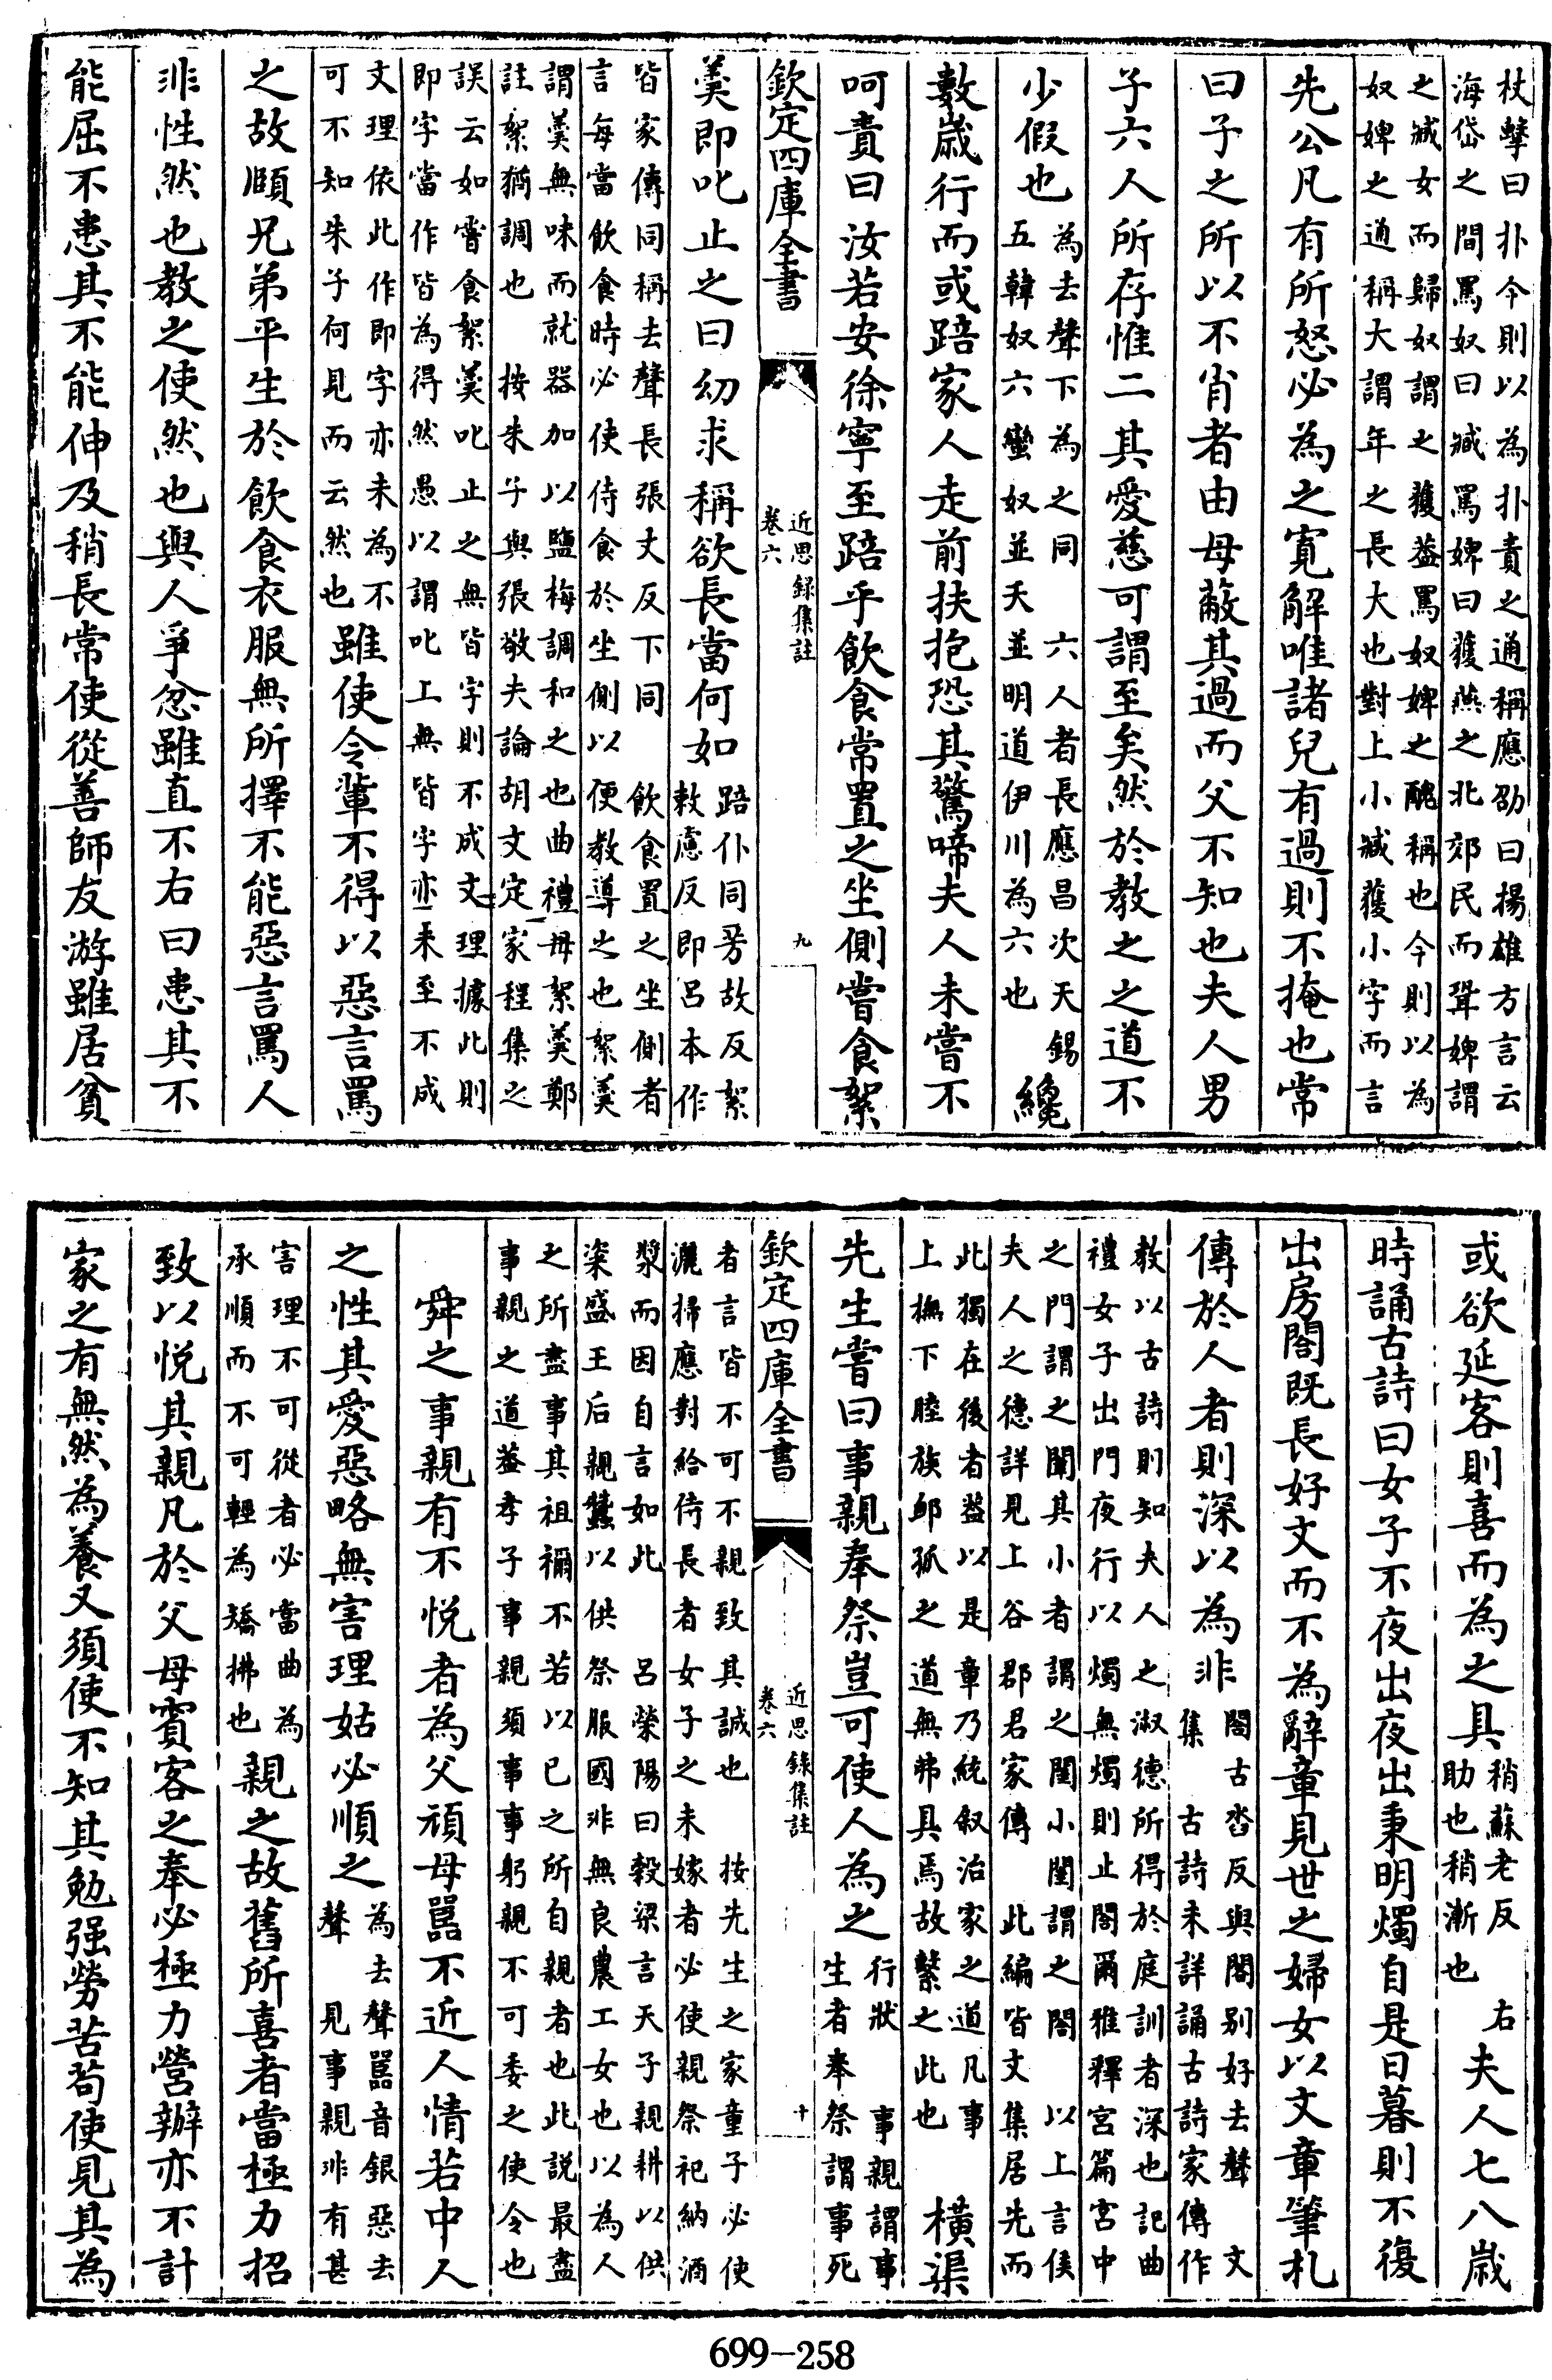 杖擊曰扑今則以為扑責之通稱應劭曰揚雄方言云
海岱之間罵奴曰臧罵婢曰獲燕之北郊民而聟婢謂
之臧女而歸奴謂之獲葢罵奴婢之醜稱也今則以為
奴婢之通稱大謂年之長大也對上小臧獲小字而言
先公凡有所怒必為之寛解唯諸兒有過則不掩也常
曰子之所以不肖者由母蔽其過而父不知也夫人男
子六人所存惟二其愛慈可謂至矣然於教之之道不
少假也
為去聲下為之同 六人者長應昌次天錫
五韓奴六蠻奴並夭並明道伊川為六也
纔
數歳行而或踣家人走前扶抱恐其驚啼夫人未嘗不
呵責曰汝若安徐寧至踣乎飲食常置之坐側嘗食絮
欽定四庫全書
近思録集註
卷六
九
羮即叱止之曰幼求稱欲長當何如
踣仆同蒡故反絮
敕慮反即吕本作
皆家傳同稱去聲長張丈反下同 飲食置之坐側者
言每當飲食時必使侍食於坐側以便教導之也絮羮
謂羮無味而就器加以鹽梅調和之也曲禮毋絮羮鄭
註絮猶調也 按朱子與張敬夫論胡文定家程集之
誤云如嘗食絮羮叱止之無皆字則不成文理據此則
即字當作皆為得然愚以謂叱上無皆字亦未至不成
文理依此作即字亦未為不
可不知朱子何見而云然也
雖使令輩不得以惡言罵
之故頤兄弟平生於飲食衣服無所擇不能惡言罵人
非性然也教之使然也與人爭忿雖直不右曰患其不
能屈不患其不能伸及稍長常使從善師友游雖居貧
或欲延客則喜而為之具
稍蘇老反 右
助也稍漸也
夫人七八歳
時誦古詩曰女子不夜出夜出秉明燭自是日暮則不復
出房閤既長好文而不為辭章見世之婦女以文章筆札
傳於人者則深以為非
閤古沓反與閣别好去聲 文
集 古詩未詳誦古詩家傳作
教以古詩則知夫人之淑德所得於庭訓者深也記曲
禮女子出門夜行以燭無燭則止閤爾雅釋宮篇宮中
之門謂之闈其小者謂之閨小閨謂之閤 以上言侯
夫人之德詳見上谷郡君家傳 此編皆文集居先而
此獨在後者葢以是章乃統叙治家之道凡事
上撫下睦族䘏孤之道無弗具焉故繫之此也
橫渠
先生嘗曰事親奉祭豈可使人為之
行狀 事親謂事
生者奉祭謂事死
欽定四庫全書
近思録集註
卷六
十
者言皆不可不親致其誠也 按先生之家童子必使
灑掃應對給侍長者女子之未嫁者必使親祭祀納酒
漿而因自言如此 吕榮陽曰穀梁言天子親耕以供
粢盛王后親蠶以供祭服國非無良農工女也以為人
之所盡事其祖禰不若以已之所自親者也此説最盡
事親之道葢孝子事親須事事躬親不可委之使令也
舜之事親有不悦者為父頑母嚚不近人情若中人
之性其愛惡略無害理姑必順之
為去聲嚚音銀惡去
聲 見事親非有甚
害理不可從者必當曲為
承順而不可輕為矯拂也
親之故舊所喜者當極力招
致以悦其親凡於父母賓客之奉必極力營辦亦不計
家之有無然為養又須使不知其勉强勞苦茍使見其為
699-258